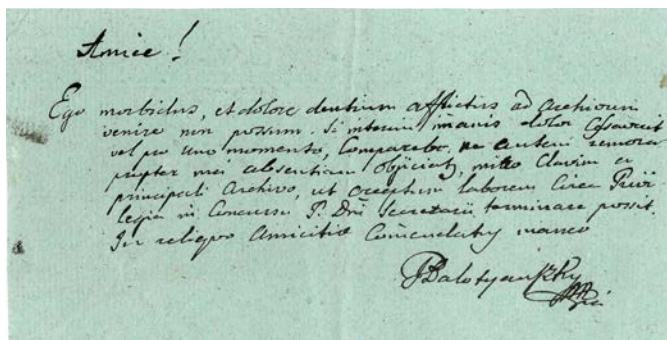 Amice!
Ego morbidus, et dolore dentium afflictus ad Archivum
venire non possum. Si interim imanis dolor cessaverit
vel pro uno momento, Comparebo. ne autem remora
propter mei absentiam objiciatur, mitto Clavim a
principali Archivo, ut coeptum laborem Circa Privi
legia in Concursu P. Dni Secretarii, terminare possit.
In reliquo Amicitiae Comendatus maneo